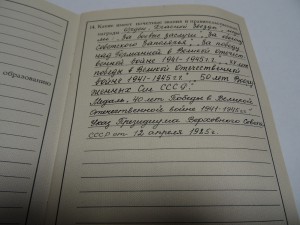 образованию
14. Какие имеет почетные звания и правительственные
награды Орден "Красной Звезды", меда-
ли: "За боевые заслуги", "За оборону
Советского Заполярья", "За победу
над Германией в Великой Отечест-
венной войне 1941-1945 г.г.", "XX лет
победы в Великой Отечественной
войне 1941-1945 г.г.", "50 лет Воору-
женных Сил СССР".
Медаль "40 лет Победы в Великой
Отечественной войне 1941-1945 г.г."
Указ Президиума Верховного Совета
СССР от 12 апреля 1985 г.